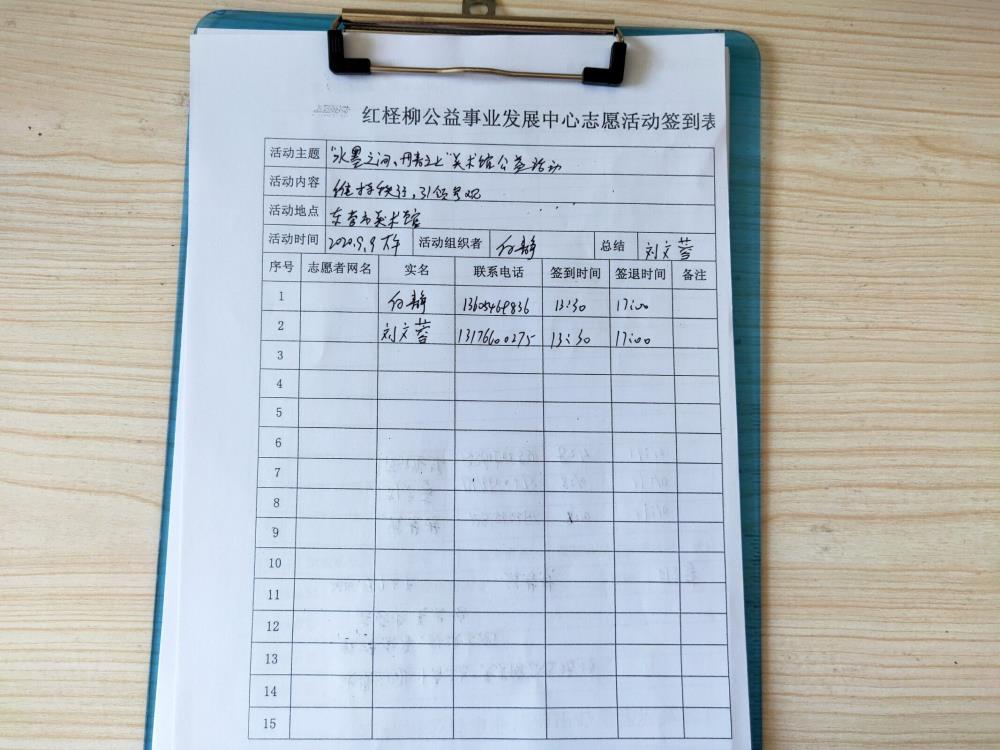 红柽柳公益事业发展中心志愿活动签到表
活动主题 "水墨之间、丹青之上"美术馆公益活动
活动内容 维持秩序,引领参观
活动地点 东营市美术馆
活动时间 2020.9.9 下午 活动组织者 付静 总结 刘文蓉
序号 志愿者网名 实名 联系电话 签到时间 签退时间 备注
1 付静 13605469836 13:30 17:00
2 刘文蓉 13176600275 13:30 17:00
3
4
5
6
7
8
9
10
11
12
13
14
15